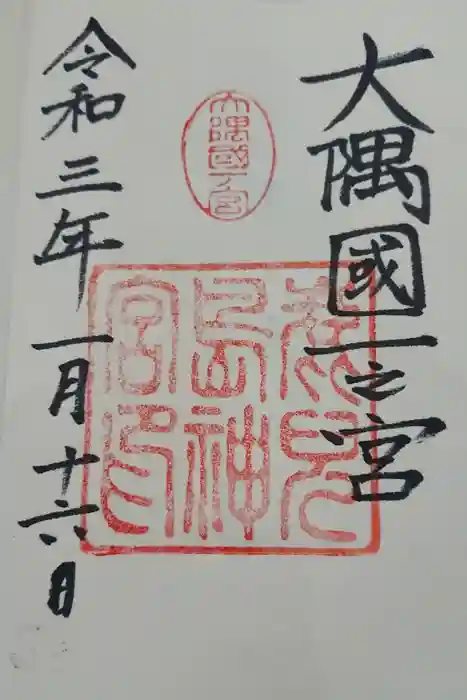 大隅國一之宮
大隅國一ノ宮
鹿兒
島神
宮印
令和三年一月十六日